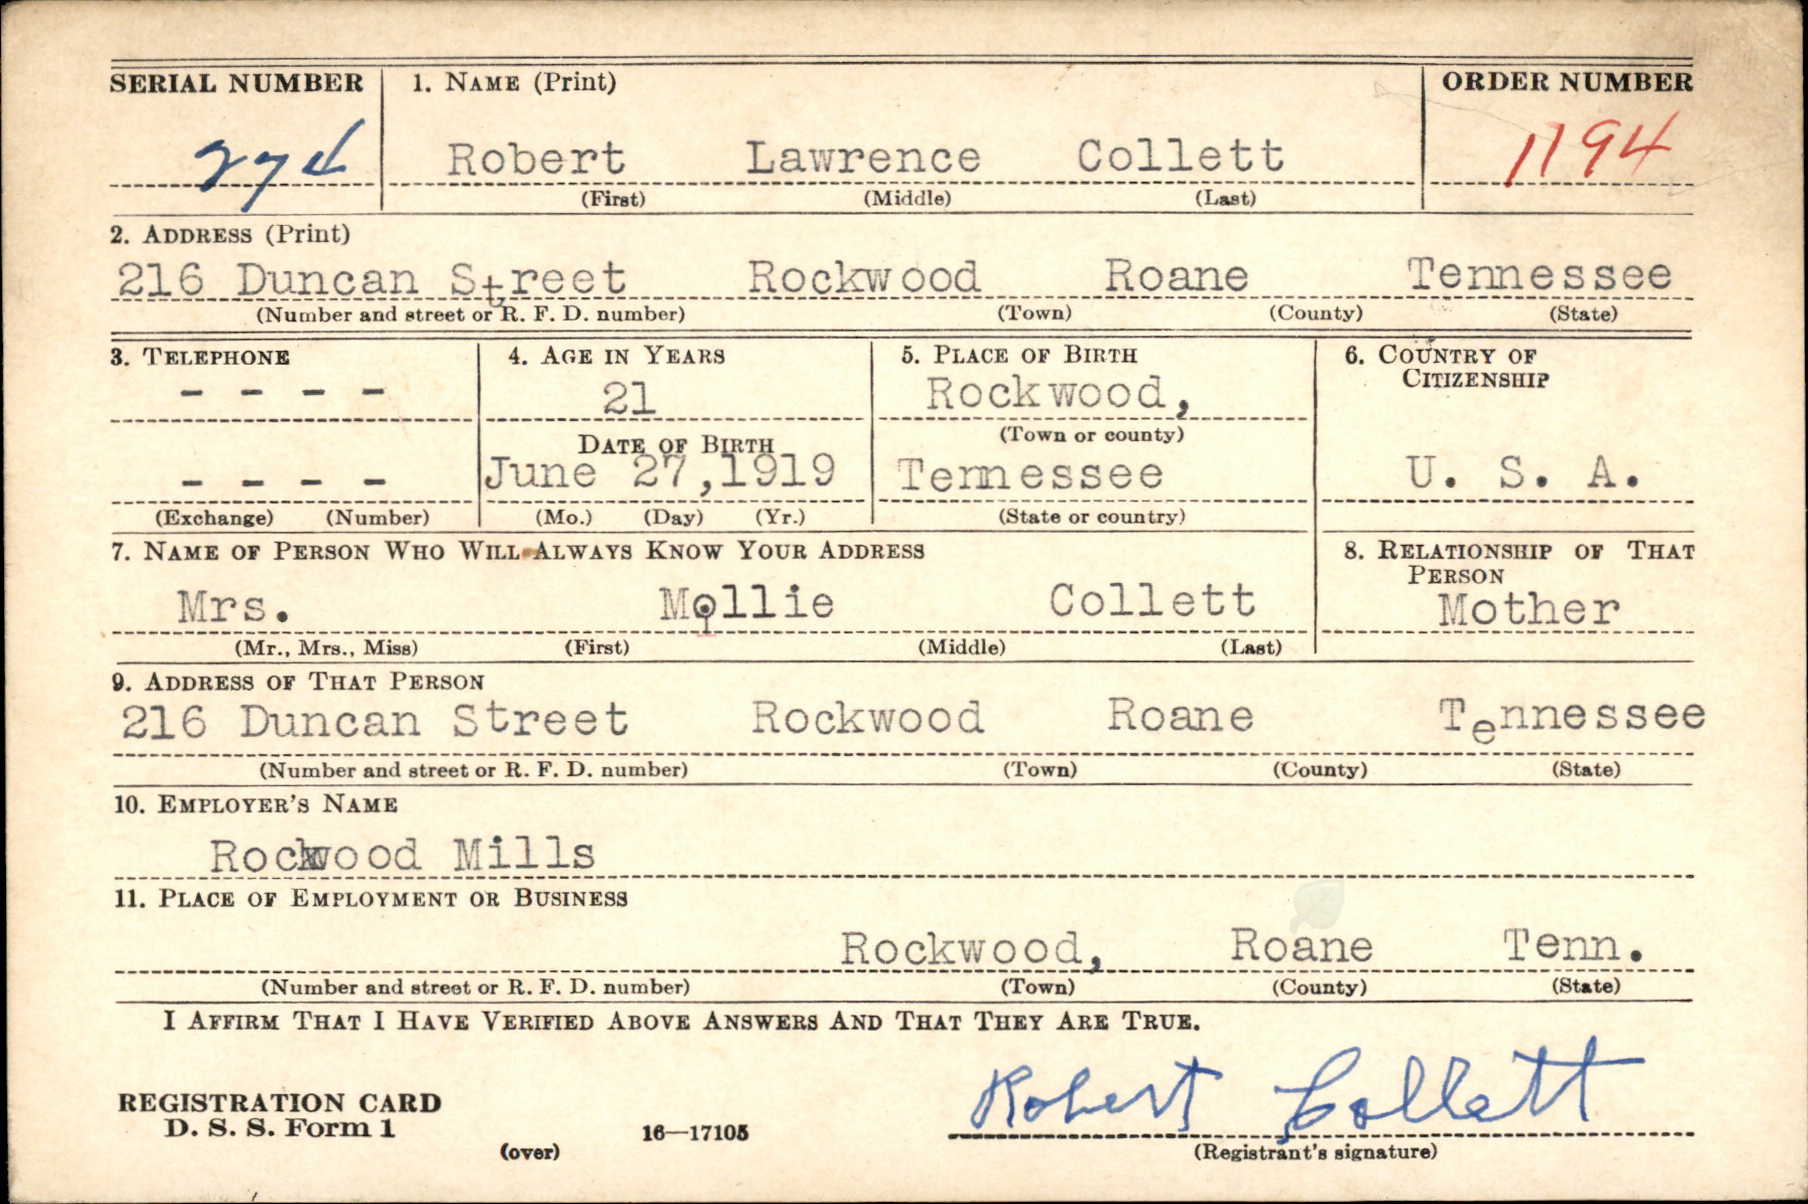 SERIAL NUMBER 1. NAME (Print) ORDER NUMBER
274 Robert Lawrence Collett 1194
(First) (Middle) (Last)
2. ADDRESS (Print)
216 Duncan Street Rockwood Roane Tennessee
(Number and street or R. F. D. number) (Town) (County) (State)
3. TELEPHONE 4. AGE IN YEARS 5. PLACE OF BIRTH 6. COUNTRY OF
CITIZENSHIP
- - - - 21 Rockwood,
DATE OF BIRTH (Town or county)
- - - - June 27,1919 Tennessee U. S. A.
(Exchange) (Number) (Mo.) (Day) (Yr.) (State or country)
7. NAME OF PERSON WHO WILL ALWAYS KNOW YOUR ADDRESS 8. RELATIONSHIP OF THAT
PERSON
Mrs. Mollie Collett Mother
(Mr., Mrs., Miss) (First) (Middle) (Last)
9. ADDRESS OF THAT PERSON
216 Duncan Street Rockwood Roane Tennessee
(Number and street or R. F. D. number) (Town) (County) (State)
10. EMPLOYER'S NAME
Rockwood Mills
11. PLACE OF EMPLOYMENT OR BUSINESS
Rockwood, Roane Tenn.
(Number and street or R. F. D. number) (Town) (County) (State)
I AFFIRM THAT I HAVE VERIFIED ABOVE ANSWERS AND THAT THEY ARE TRUE.
Robert Collett
REGISTRATION CARD
D. S. S. Form 1 16—17105
(over) (Registrant's signature)